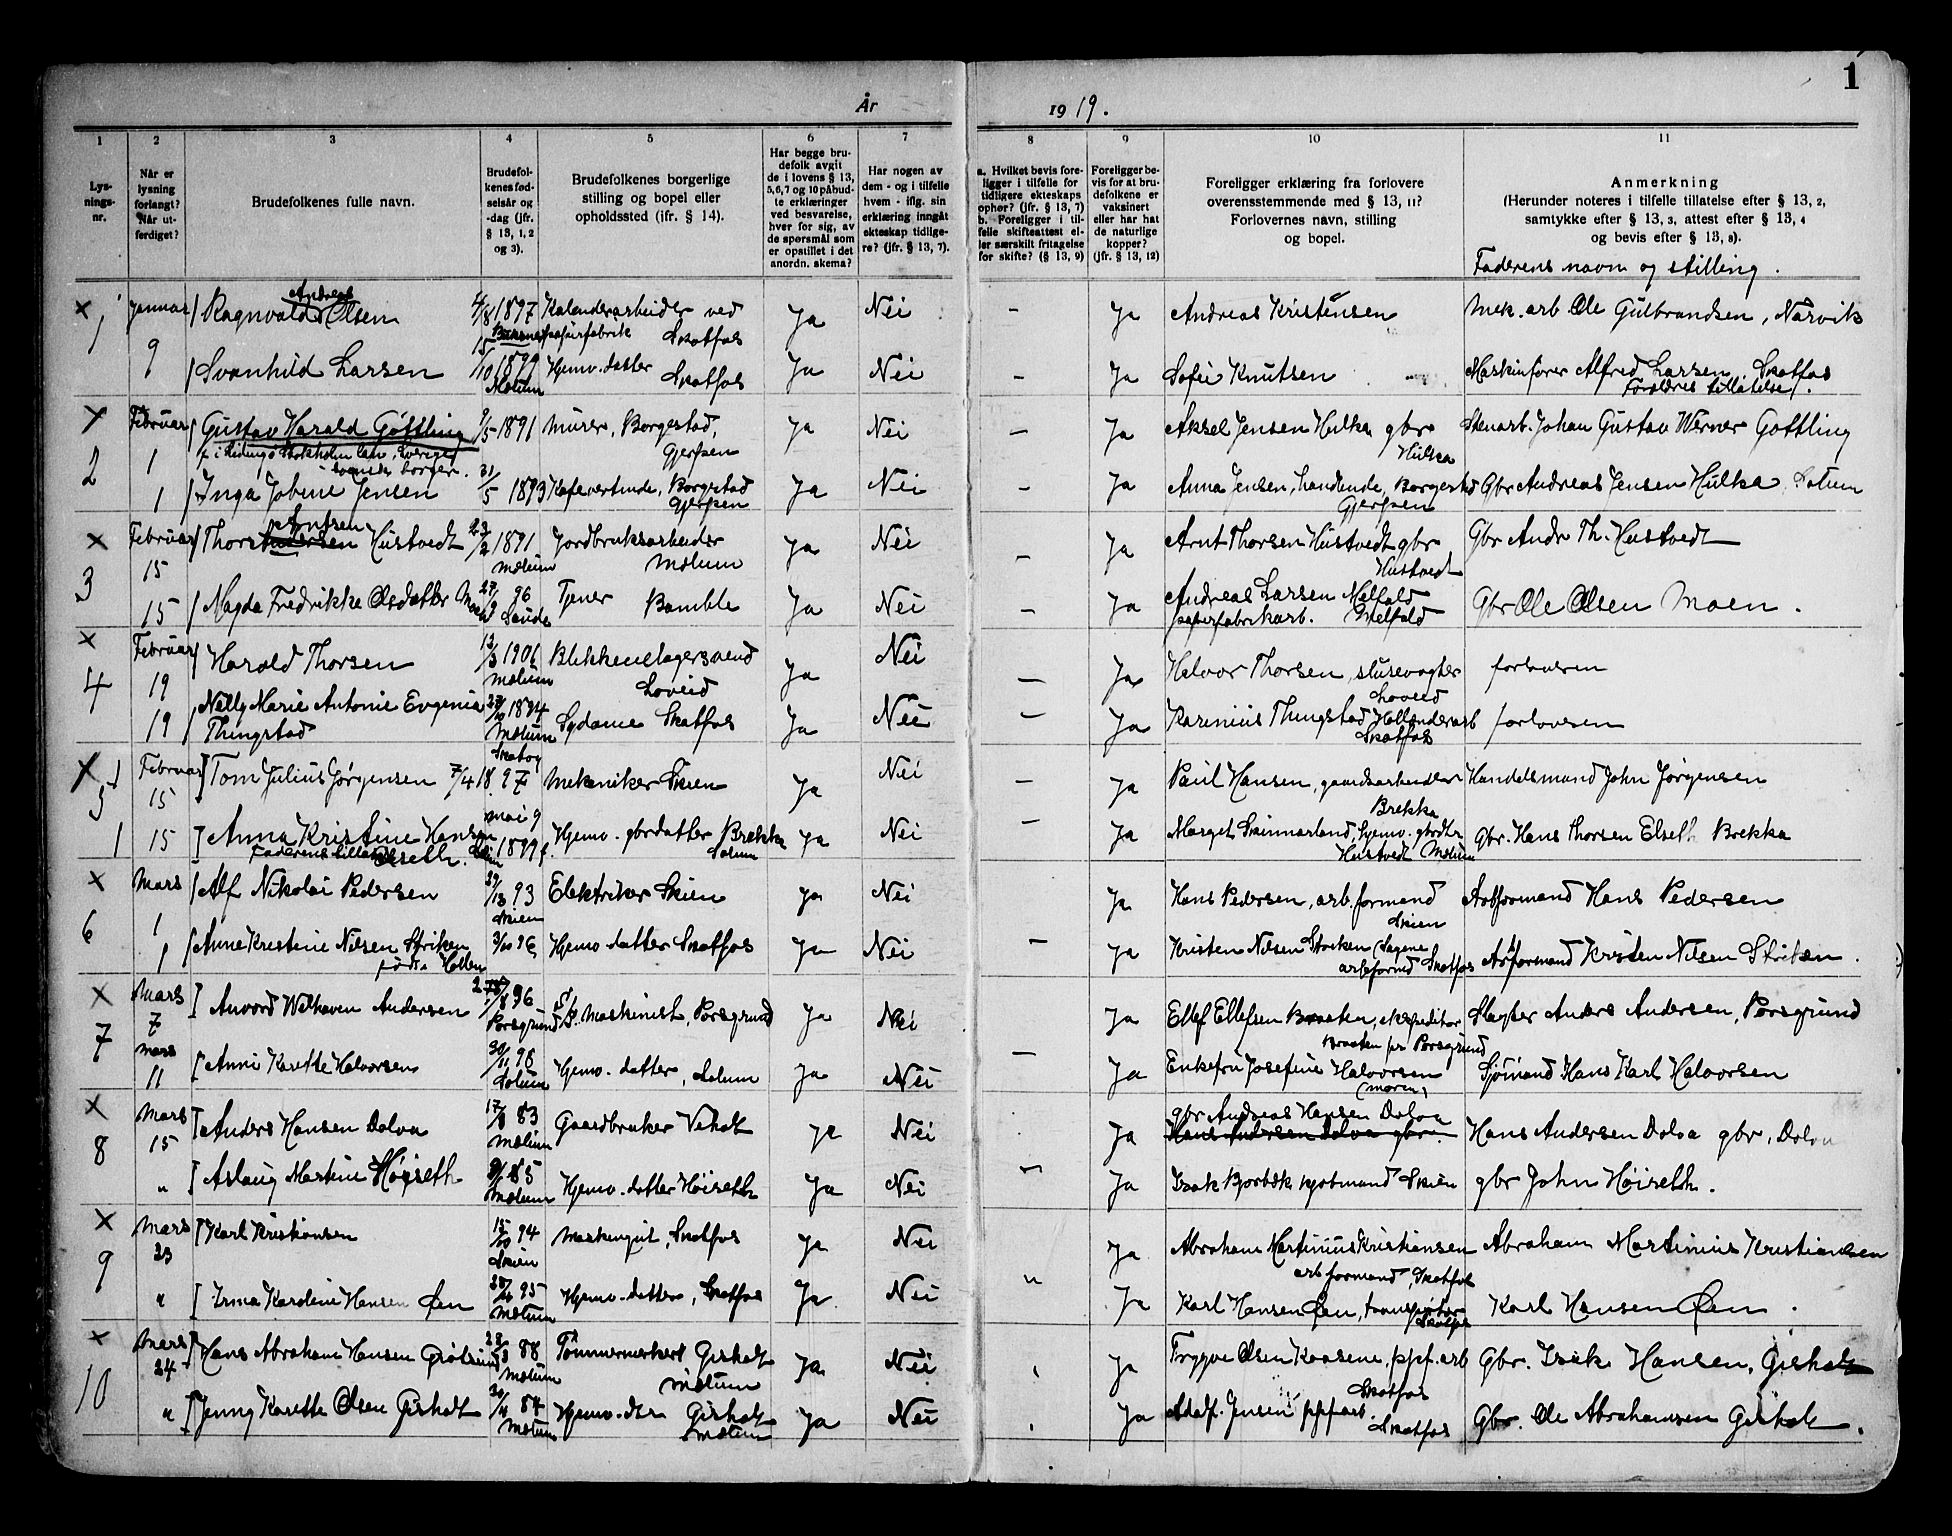 1
År 1919.
1 2 3 4 5 6 7 8 9 10 11
Lys-
nings-
nr.
Når er
lysning
forlangt?
Når ut-
ferdiget?
Brudefolkenes fulle navn.
Brudefol-
kenes fød-
selsår og
-dag (jfr.
§ 13, 1, 2
og 3).
Brudefolkenes borgerlige
stilling og bopel eller
opholdssted (ifr. § 14).
Har begge bru-
defolk avgit
de i lovens § 13,
5, 6, 7 og 10 påbud-
te erklæringer
ved besvarelse,
hver for sig, av
de spørsmål som
er opstillet i det
anordn. skema?
Har nogen av
dem - og i tilfelle
hvem - iflg. sin
erklæring inngått
ekteskap tidlige-
re? (jfr. § 13, 7).
a. Hvilket bevis fore-
ligger i tilfelle for
tidligere ekteskaps
ophør? (jfr. § 13, 7)
b. Foreligger i til-
felle skifteattest el-
ler særskilt fritagelse
for skifte? (§ 13, 9)
Foreligger be-
vis for at bru-
defolkene er
vaksinert
eller har hat
de naturlige
kopper?
(jfr. § 13, 12)
Foreligger erklæring fra forlovere
overensstemmende med § 13, 11?
Forlovernes navn, stilling
og bopel.
Anmerkning
(Herunder noteres i tilfelle tillatelse efter § 13, 2,
samtykke efter § 13, 3, attest efter § 13, 4
og bevis efter § 13, 8).
Faderens navn og stilling.
× 1 Januar Ragnvald Andreas Olsen 4/8 1897 Kalanderarbeider ved papirfabrik Skotfos Ja Nei – Ja Andreas Kristensen Mek. arb Ole Gulbrandsen, Narvik
9 Svanhild Larsen 15/10 1899 Mælum Hjemv. datter Skotfos Ja Nei – Ja Sofie Knutsen Maskinfører Alfred Larsen, Skotfos
Foreldres tillatelse.
× 2 Februar 1 Gustav Harald Göttling 1891 Murer, Borgestad, Gjerpen Ja Nei – Ja Aksel Jensen Hulka gbr Hulka Stenarb. Johan Gustav Werner Göttling
f. i Lidingö Stockholm län, Sverige
svensk borger.
1 Inga Jobine Jensen 31/5 1893 Kafevertinde, Borgestad Gjerpen Ja Nei – Ja Anna Jensen, handlende, Borgestad Gjerpen Gbr Andreas Jensen Hulka, Solum
× 3 Februar 15 Thor Arntsen Hustvedt 1891 Mælum Jordbruksarbeider Mælum Ja Nei – Ja Arnt Thorsen Hustvedt gbr Hustvedt Gbr Andr Th. Hustvedt
15 Magda Fredrikke Olsdatter Moen 96 Sauda Tjener Bamble Ja Nei – Ja Andreas Larsen Melfald papirfabrikarb. Melfald Gbr Ole Olsen Moen.
× 4 Februar 19 Harald Thorsen 1901 Mælum Blikkenslagersvend Løveid Ja Nei – Ja Halvor Thorsen, slusevogter Løveid forloveren
19 Nelly Marie Antonie Evgenia Thingstad 1894 Mælum Sydame Skotfos Ja Nei – Ja Karenius Thingstad Hollenderarb Skotfos forloveren
× 5 Februar 15 Tom Julius Jørgensen 7/4 18 97 Mekaniker Skien Ja Nei – Ja Paul Hansen, gaardsarbeider Brekka Handelsmand John Jørgensen
1 15 Anna Kristine Hansen Elseth. mai 9 1899 Hjemv. gbrdatter Brekka Solum Ja Nei – Ja Marget Skinnarland, hjemv. gbrdtr Hustvedt Mælum Gbr. Hans Thorsen Elseth Brekka
Faderens tillatelse
× 6 Mars 1 Alf Nikolai Pedersen 93 Skien Elektriker Skien Ja Nei Ja Hans Pedersen, arb. formand Skien Arbformand Hans Pedersen
1 Anne Kristine Nilsen Striken 3/10 96 Hjemv datter Skotfos Ja Nei – Ja Kristen Nilsen arbformd Skotfos Arbformand Kristen Nilsen Striken.
født i Hollen
× 7 Mars 7 Anvord Welhaven Andersen 96 Porsgrund Maskinist, Porsgrund Ja Nei Ja Ellef Ellefsen Braaten, ekspeditør Braaten pr Porsgrund Slagter Anders Andersen, Porsgrund
Mars 11 Anni Karette Halvorsen 30/11 98 Solum Hjemv. datter, Solum Ja Nei – Ja Enkefru Josefine Halvorsen (moren) Sjömand Hans Karl Halvorsen
× 8 Mars 15 Anders Hansen Dolva 17/8 83 Mælum Gaardbruker Ja Nei Ja gbr Andreas Hansen Dolva Hans Andersen Dolva gbr. Hans Andersen Dolva gbr, Dolva
" Aslaug Martine Høiseth 85 Mælum Hjemv. datter Høiseth Ja Nei – Ja Isak Bjorbæk kjøbmand Skien gbr John Høiseth.
× 9 Mars 23 Karl Kristiansen 15/10 94 Skien Maskingut, Skotfos Ja Nei Ja Abraham Martinius Kristiansen arbformand, Skotfos Abraham Martinius Kristiansen
" Irma Karoline Hansen Øen 95 Mælum Hjemv. datter, Skotfos Ja Nei " Ja Karl Hansen Øen, transportør Skotfos Karl Hansen Øen.
× 10 Mars 24 Hans Abraham Hansen Grötsund 88 Mælum Tömmermerker Gisholt Mælum Ja Nei Ja Trygve Olsen Kaasene, ppf. arb Skotfos Gbr. Isak Hansen, Gisholt
" Jenny Karette Olsen Gisholt 84 Mælum Hjemv. dtr Gisholt Mælum Ja Nei Ja Adolf Jensen ppfarb Skotfos Gbr. Ole Abrahamsen Gisholt.